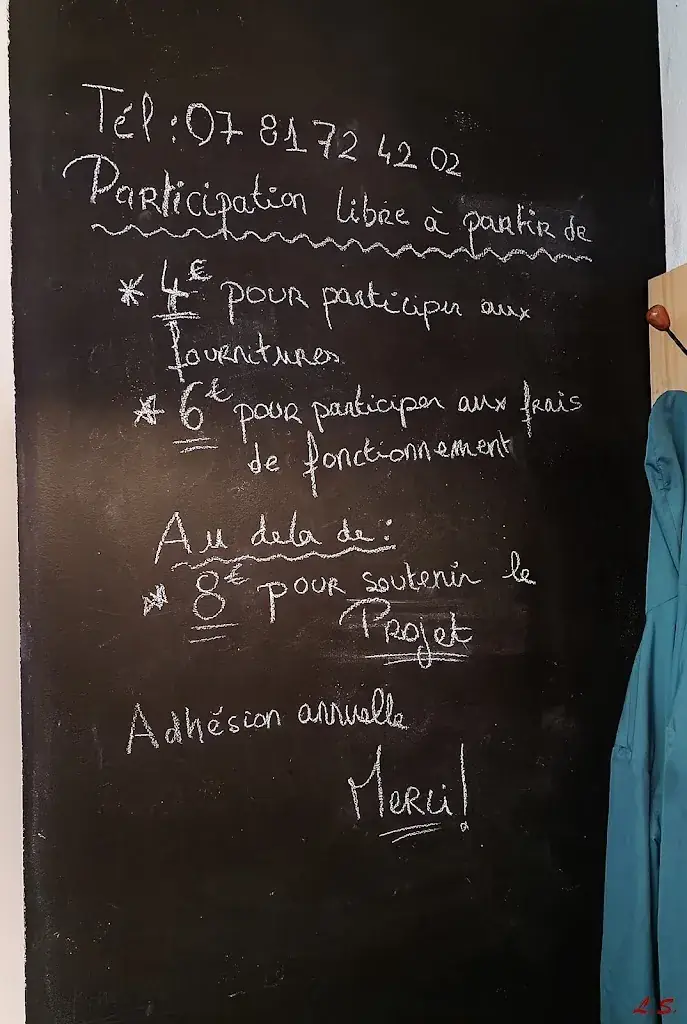 Tél : 07 81 72 42 02
Participation libre à partir de
* 4€ pour participer aux
fournitures
* 6€ pour participer aux frais
de fonctionnement
Au dela de :
* 8€ pour soutenir le
Projet
Adhésion annuelle
Merci !
L.S.